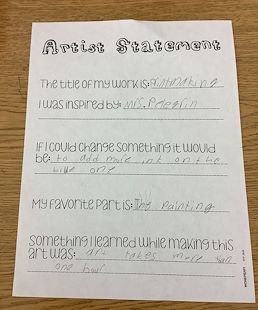 Artist Statement
The title of my work is: Printmaking
I was inspired by: Mrs. Pelegrin
If I could change something it would
be: to add more ink on the
blue one
My favorite part is: The Painting
Something I learned while making this
art was: art takes more than
one hour